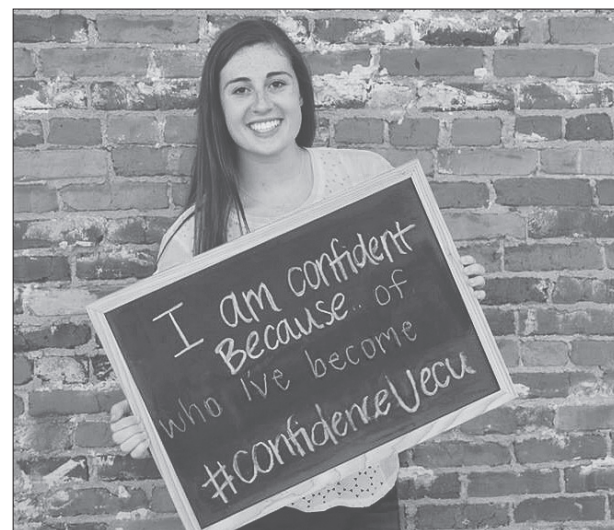 I am confident
Because of
who I've become
#confidenceUecu